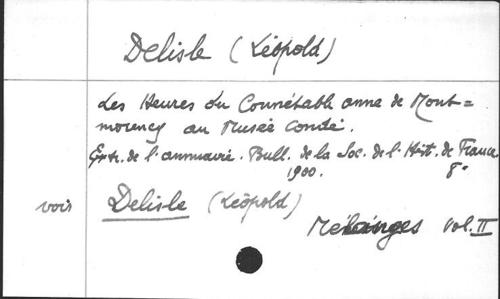 Delisle (Léopold)
Les Heures du Connétable anne de Mont=
morency au Musée Condé.
Extr. de l'annuaire. Bull. de la Soc. de l'Hist. de France.
1900. 8°
voir Delisle (Léopold)
Mélanges Vol. II